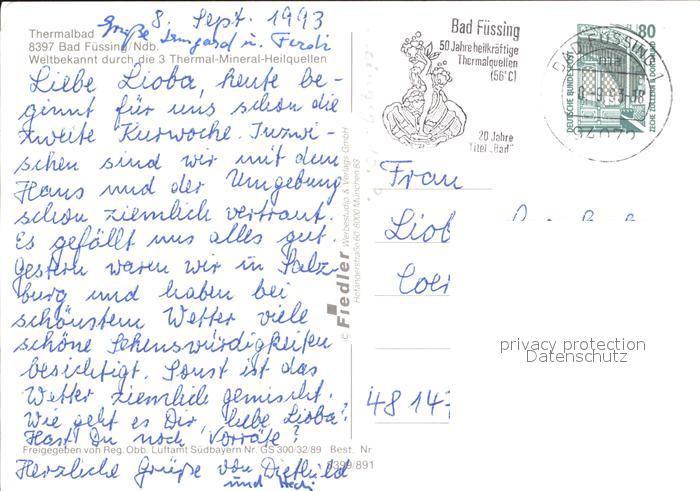 8. Sept. 1993
Grüße Irmgard u. Ferdi
Thermalbad
8397 Bad Füssing/Ndb.
Weltbekannt durch die 3 Thermal-Mineral-Heilquellen
Liebe Lioba, heute be-
ginnt für uns schon die
zweite Kurwoche. Inzwi-
schen sind wir mit dem
Haus und der Umgebung
schon ziemlich vertraut.
Es gefällt uns alles gut.
Gestern waren wir in Salz-
burg und haben bei
schönstem Wetter viele
schöne Sehenswürdigkeiten
besichtigt. Sonst ist das
Wetter ziemlich gemischt.
Wie geht es Dir, liebe Lioba?
Hast Du noch Vorräte?
Freigegeben von Reg. Obb. Luftamt Südbayern Nr. GS 300/32/89 Best. Nr
8399/891
Herzliche Grüße von Diethild
und
© Fiedler Werbestudio & Verlags GmbH
Hofangerstraße 60 · 8000 München 83
Bad Füssing
50 Jahre heilkräftige
Thermalquellen
(56°C)
20 Jahre
Titel „Bad"
BAD FÜSSING 1
94072
80
DEUTSCHE BUNDESPOST
ZECHE ZOLLERN II DORTMUND
Frau
Liob
Coe
48 147
privacy protection
Datenschutz